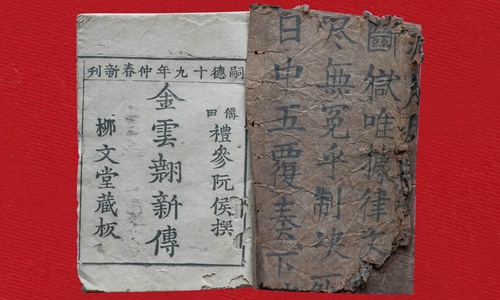 斷獄唯據律
尽無冤乎制决
日申五覆奏下
嗣德十九年仲春新刊
僊田
禮參阮侯撰
金雲翹新傳
柳文堂藏板